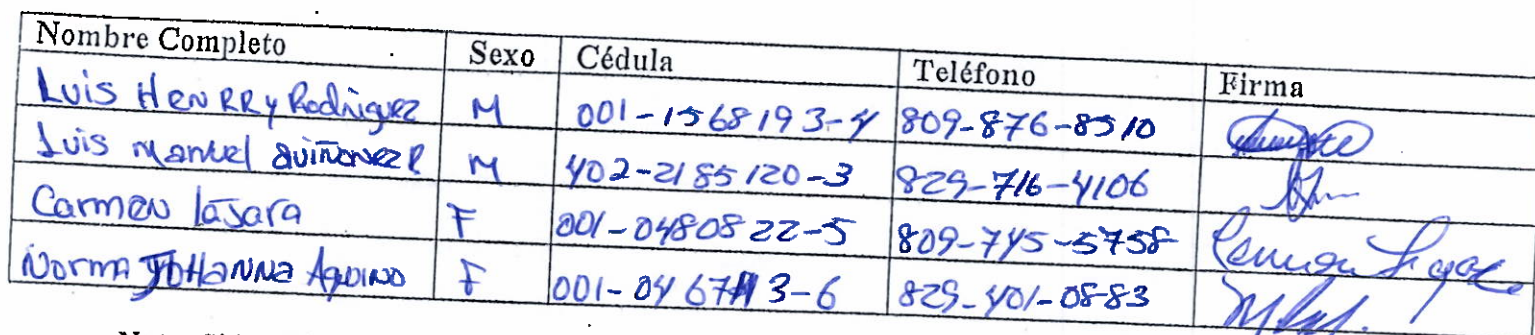 Nombre Completo Sexo Cédula Teléfono Firma
Luis HENRRy Rodriguez M 001-1568193-4 809-876-8510
Luis manuel quiñonez R M 402-2185120-3 829-716-4106
Carmen lasara F 001-0480822-5 809-745-5758 Carmen
Norma JOHANNA Aquino F 829-401-0883